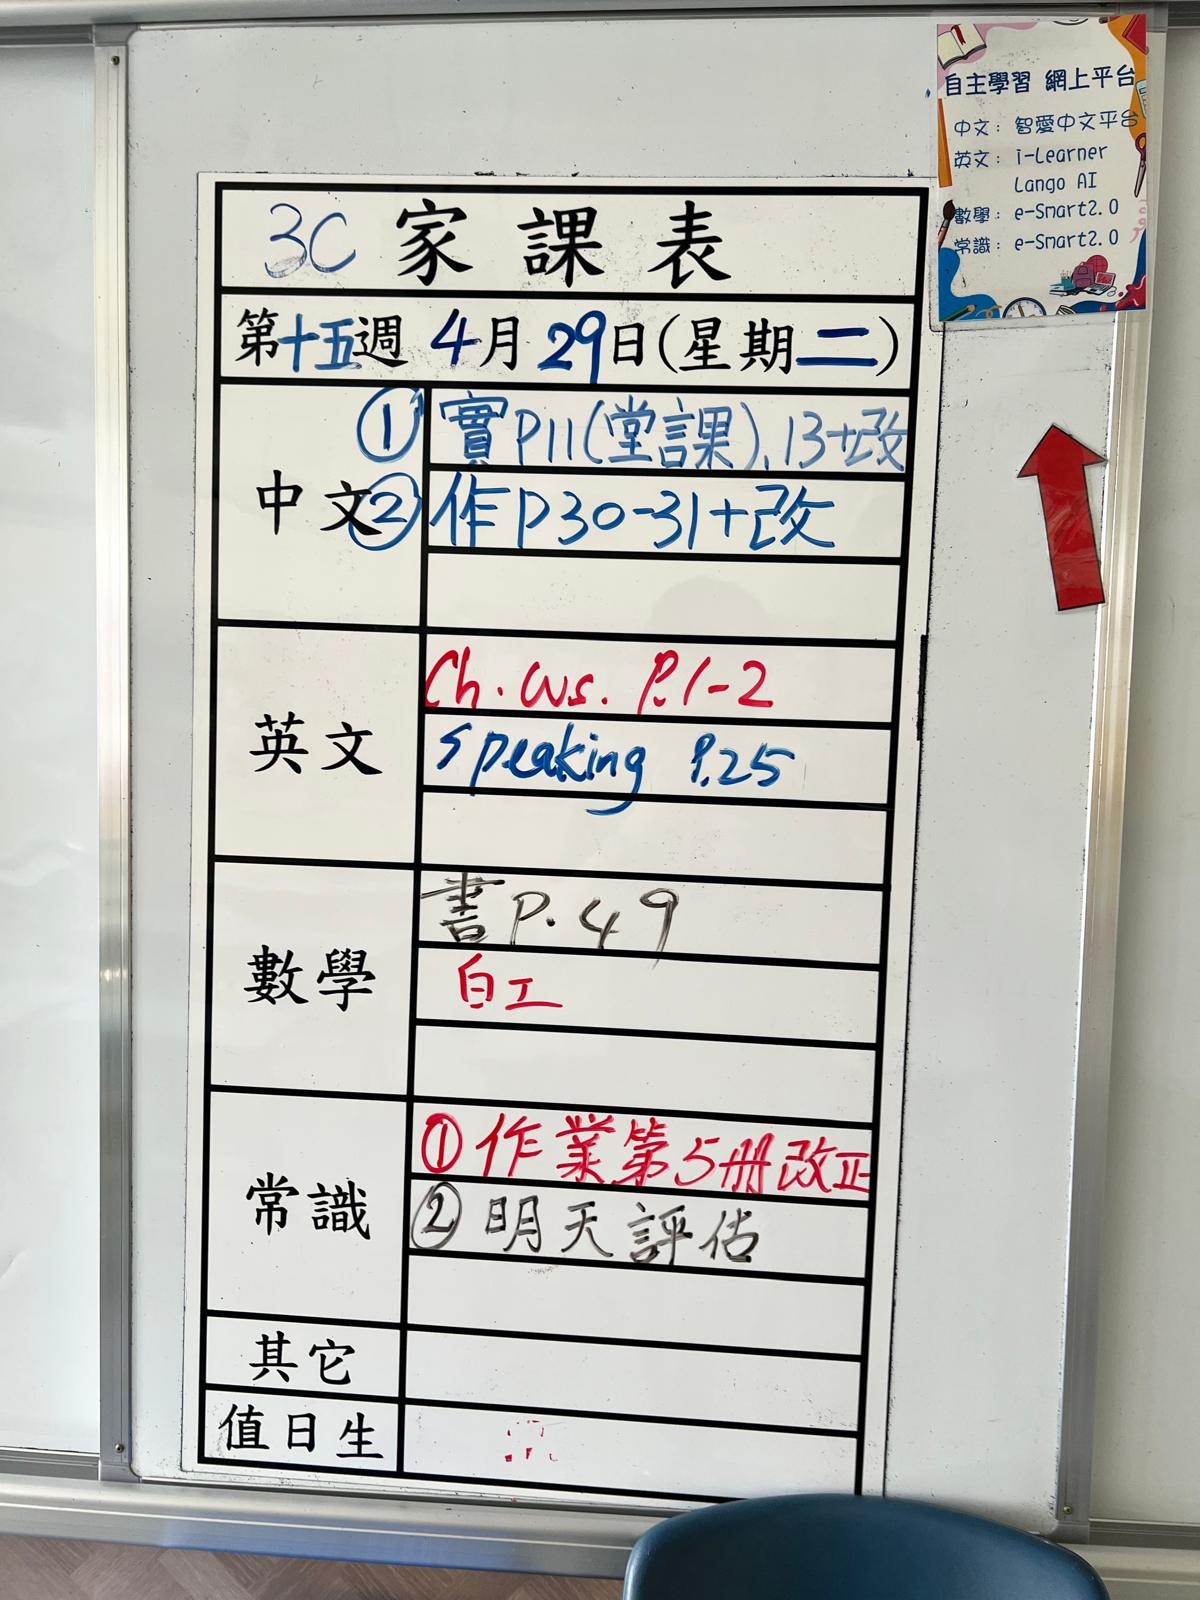 自主學習 網上平台
中文：智愛中文平台
英文：i-Learner
Lango AI
數學：e-Smart2.0
常識：e-Smart2.0
3C 家課表
第十五週 4月29日(星期二)
中文
① 實P11(堂課)、13+改
② 作P30-31+改
英文
Ch. Ws. P.1-2
Speaking P.25
數學
書P.49
白工
常識
① 作業第5冊改正
② 明天評估
其它
值日生